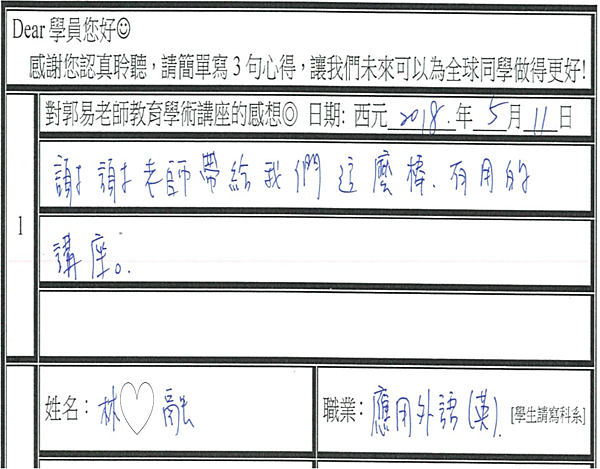 Dear 學員您好☺
感謝您認真聆聽，請簡單寫 3 句心得，讓我們未來可以為全球同學做得更好!
對郭易老師教育學術講座的感想◎ 日期: 西元 2018. 年 5 月 11 日
1
謝謝老師帶給我們這麼棒、有用的
講座。
姓名：林♡融
職業：應用外語(英). [學生請寫科系]